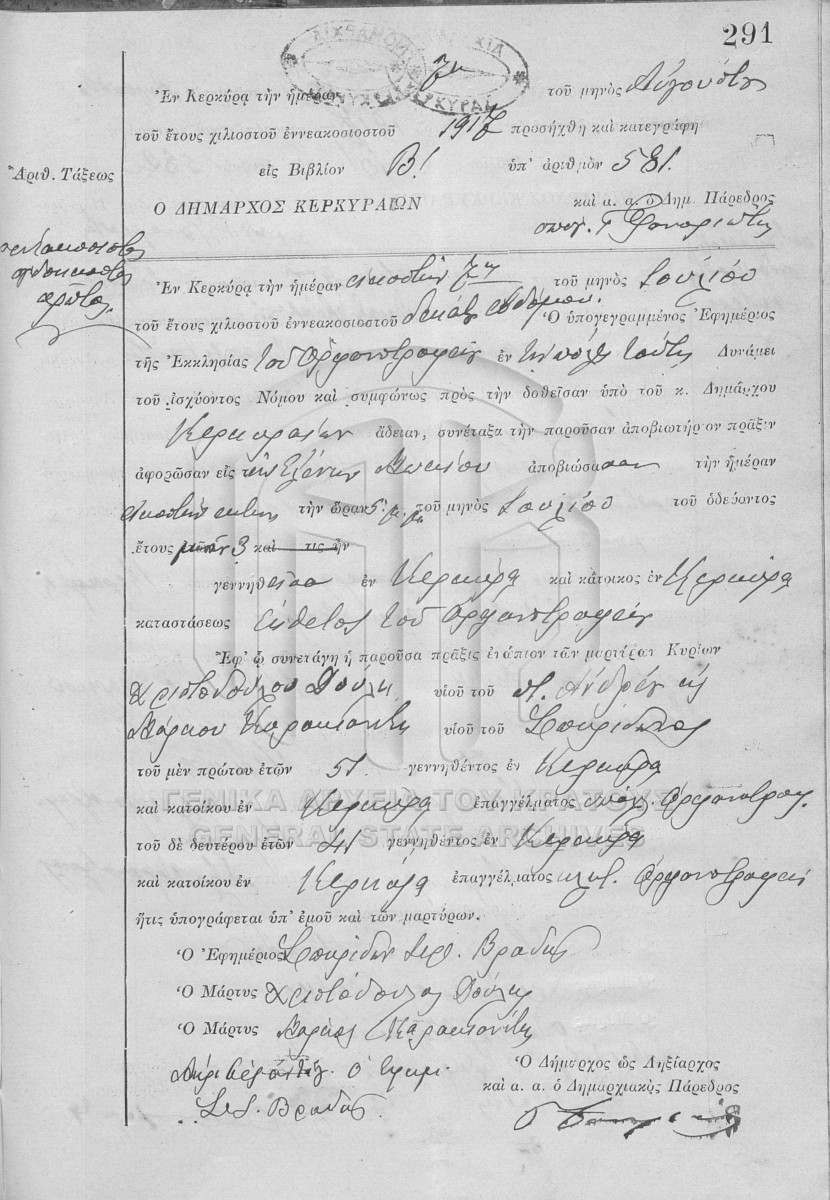 291
Ἐν Κερκύρᾳ τὴν ἡμέραν 7ην τοῦ μηνὸς Αὐγούστου
τοῦ ἔτους χιλιοστοῦ ἐννεακοσιοστοῦ 1917 προσήχθη καὶ κατεγράφη
Ἀριθ. Τάξεως
εἰς Βιβλίον Β! ὑπ' ἀριθμὸν 581.
Ο ΔΗΜΑΡΧΟΣ ΚΕΡΚΥΡΑΙΩΝ
καὶ α. α. ὁ Δημ. Πάρεδρος
πεντακοσιοστὸς
ὀγδοηκοστὸς
πρῶτος.
Ἐν Κερκύρᾳ τὴν ἡμέραν εἰκοστὴν 7ην τοῦ μηνὸς Ἰουλίου
τοῦ ἔτους χιλιοστοῦ ἐννεακοσιοστοῦ δεκάτου ἑβδόμου. Ὁ ὑπογεγραμμένος Ἐφημέριος
τῆς Ἐκκλησίας τοῦ Ὀρφανοτροφείου ἐν τῇ πόλει ταύτῃ Δυνάμει
τοῦ ἰσχύοντος Νόμου καὶ συμφώνως πρὸς τὴν δοθεῖσαν ὑπὸ τοῦ κ. Δημάρχου
Κερκυραίων ἄδειαν, συνέταξα τὴν παροῦσαν ἀποβιωτήριον πρᾶξιν
ἀφορῶσαν εἰς τὴν Ἑλένην ἀποβιώσασαν τὴν ἡμέραν
εἰκοστὴν ἕκτην τὴν ὥραν 5 μ.μ. τοῦ μηνὸς Ἰουλίου τοῦ ὁδεύοντος
ἔτους μηνῶν 3 καὶ τις ἦν
γεννηθεῖσα ἐν Κερκύρᾳ καὶ κάτοικος ἐν Κερκύρᾳ
καταστάσεως ἔκθετος τοῦ Ὀρφανοτροφείου
Ἐφ' ᾧ συνετάγη ἡ παροῦσα πρᾶξις ἐνώπιον τῶν μαρτύρων Κυρίων
Χριστοδούλου Δούλη υἱοῦ τοῦ π. Ἀνδρέου κ
Μάρκου υἱοῦ τοῦ Σπυρίδωνος
τοῦ μὲν πρώτου ἐτῶν 51. γεννηθέντος ἐν Κερκύρᾳ
καὶ κατοίκου ἐν Κερκύρᾳ ἐπαγγέλματος ὑπάλ. Ὀρφανοτροφ.
ΓΕΝΙΚΑ ΑΡΧΕΙΑ ΤΟΥ ΚΡΑΤΟΥΣ
GENERAL STATE ARCHIVES
τοῦ δὲ δευτέρου ἐτῶν 41 γεννηθέντος ἐν Κερκύρᾳ
καὶ κατοίκου ἐν Κερκύρᾳ ἐπαγγέλματος Ὀρφανοτροφείου
ἥτις ὑπογράφεται ὑπ' ἐμοῦ καὶ τῶν μαρτύρων.
Ὁ Ἐφημέριος Σπυρίδων Ἱερ. Βραδῆς
Ὁ Μάρτυς Χριστόδουλος Δούλης
Ὁ Μάρτυς Μάρκος
ὁ Ἐφημ.
Σ. Ι. Βραδῆς.
Ὁ Δήμαρχος ὡς Ληξίαρχος
καὶ α. α. ὁ Δημαρχιακὸς Πάρεδρος